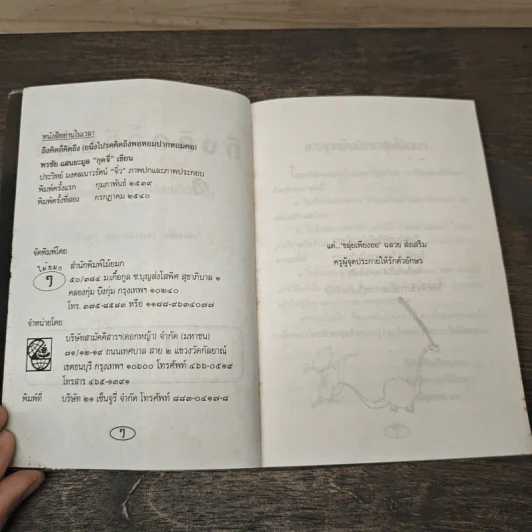 หนังสืออ่านในเวลา
ถึงคิดก็คิดถึง (อนึ่งโปรดคิดถึงพอหอมปากหอมคอ)
พรชัย แสนยะมูล "กุดจี่" เขียน
ประวิทย์ มงคลเนาวรัตน์ "จิ๋ว" ภาพปกและภาพประกอบ
พิมพ์ครั้งแรก กุมภาพันธ์ ๒๕๓๙
พิมพ์ครั้งที่สอง กรกฎาคม ๒๕๔๐
จัดพิมพ์โดย
ไม้ยมก
ๆ
สำนักพิมพ์ไม้ยมก
๕๐/๓๘๔ ม.เกื้อกูล ซ.บุญส่งโสพิศ สุขาภิบาล ๑
คลองกุ่ม บึงกุ่ม กรุงเทพฯ ๑๐๒๔๐
โทร. ๓๗๕-๘๕๘๓ หรือ ๑๑๘๘-๙๖๓๔๐๗๗
จำหน่ายโดย
บริษัทสามัคคีสาร(ดอกหญ้า) จำกัด (มหาชน)
๗๑/๑๒-๑๙ ถนนเทศบาล สาย ๒ แขวงวัดกัลยาณ์
เขตธนบุรี กรุงเทพฯ ๑๐๖๐๐ โทรศัพท์ ๔๖๖-๐๕๑๙
โทรสาร ๔๖๕-๑๓๙๑
พิมพ์ที่ บริษัท ๒๑ เซ็นจูรี่ จำกัด โทรศัพท์ ๘๘๓-๐๔๑๗-๘
ๆ
แด่..."ขลุ่ยเพียงออ" ฉลวย ส่งเสริม
ครูผู้จุดประกายให้รักตัวอักษร